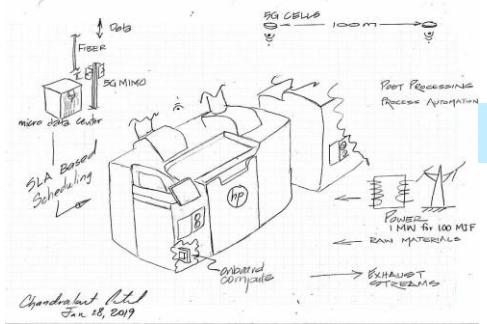 Data
FIBER
5G MIMO
micro data center
SLA Based
Scheduling
5G CELLS
100M
POST PROCESSING
PROCESS AUTOMATION
hp
8
onboard
compute
POWER
1 MW for 100 MJF
RAW MATERIALS
EXHAUST
STREAMS
Chandrakant Patel
Jan 28, 2019